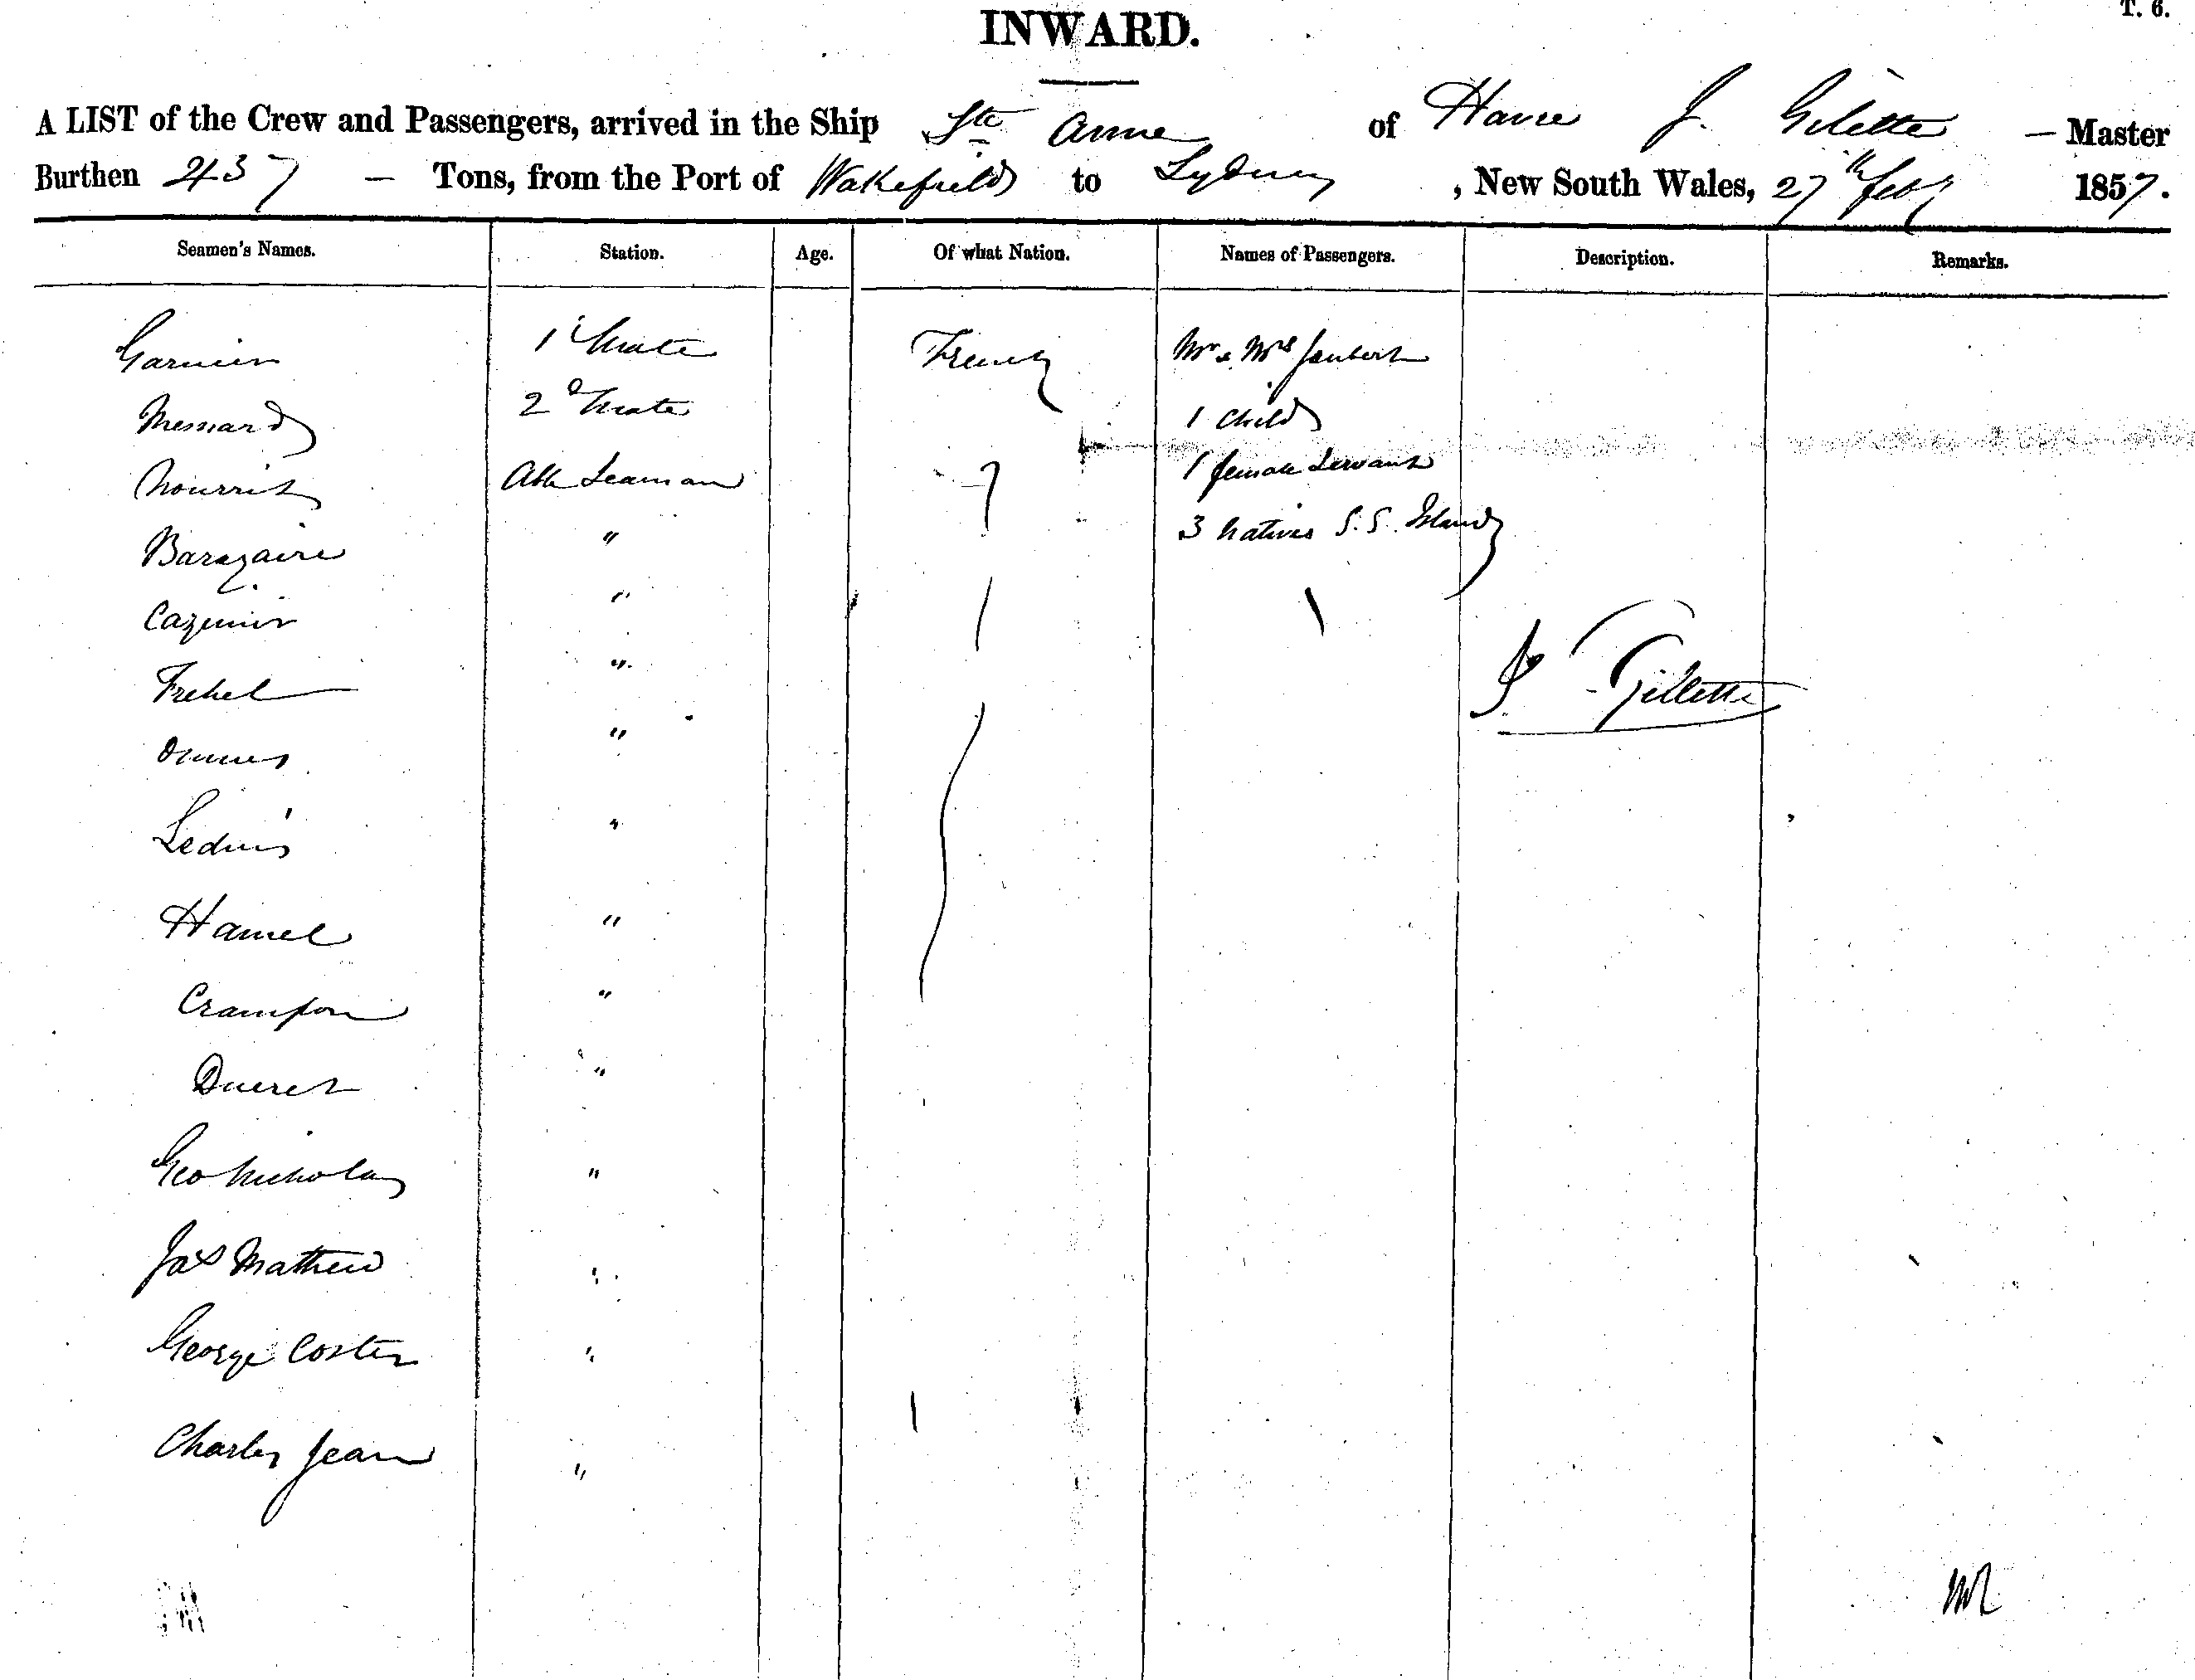 T. 6.
INWARD.
A LIST of the Crew and Passengers, arrived in the Ship Ste Anne of Havre J. Gilette — Master
Burthen 437 — Tons, from the Port of Wakefield to Sydney, New South Wales, 27th Feby 1857.
Seamen's Names. Station. Age. Of what Nation. Names of Passengers. Description. Remarks.
Garnier 1 Mate French Mr & Mrs Joubert
Mesnard 2d Mate 1 Child
Nourrit Able Seaman 1 female Servant
Barazaire " 3 Natives S. S. Island
Cazimir "
Frehel " J Gillette
"
"
Hamel "
Crampon "
Ducret "
Geo Nicholas "
Jas Mathew "
George Coster "
Charles Jean "